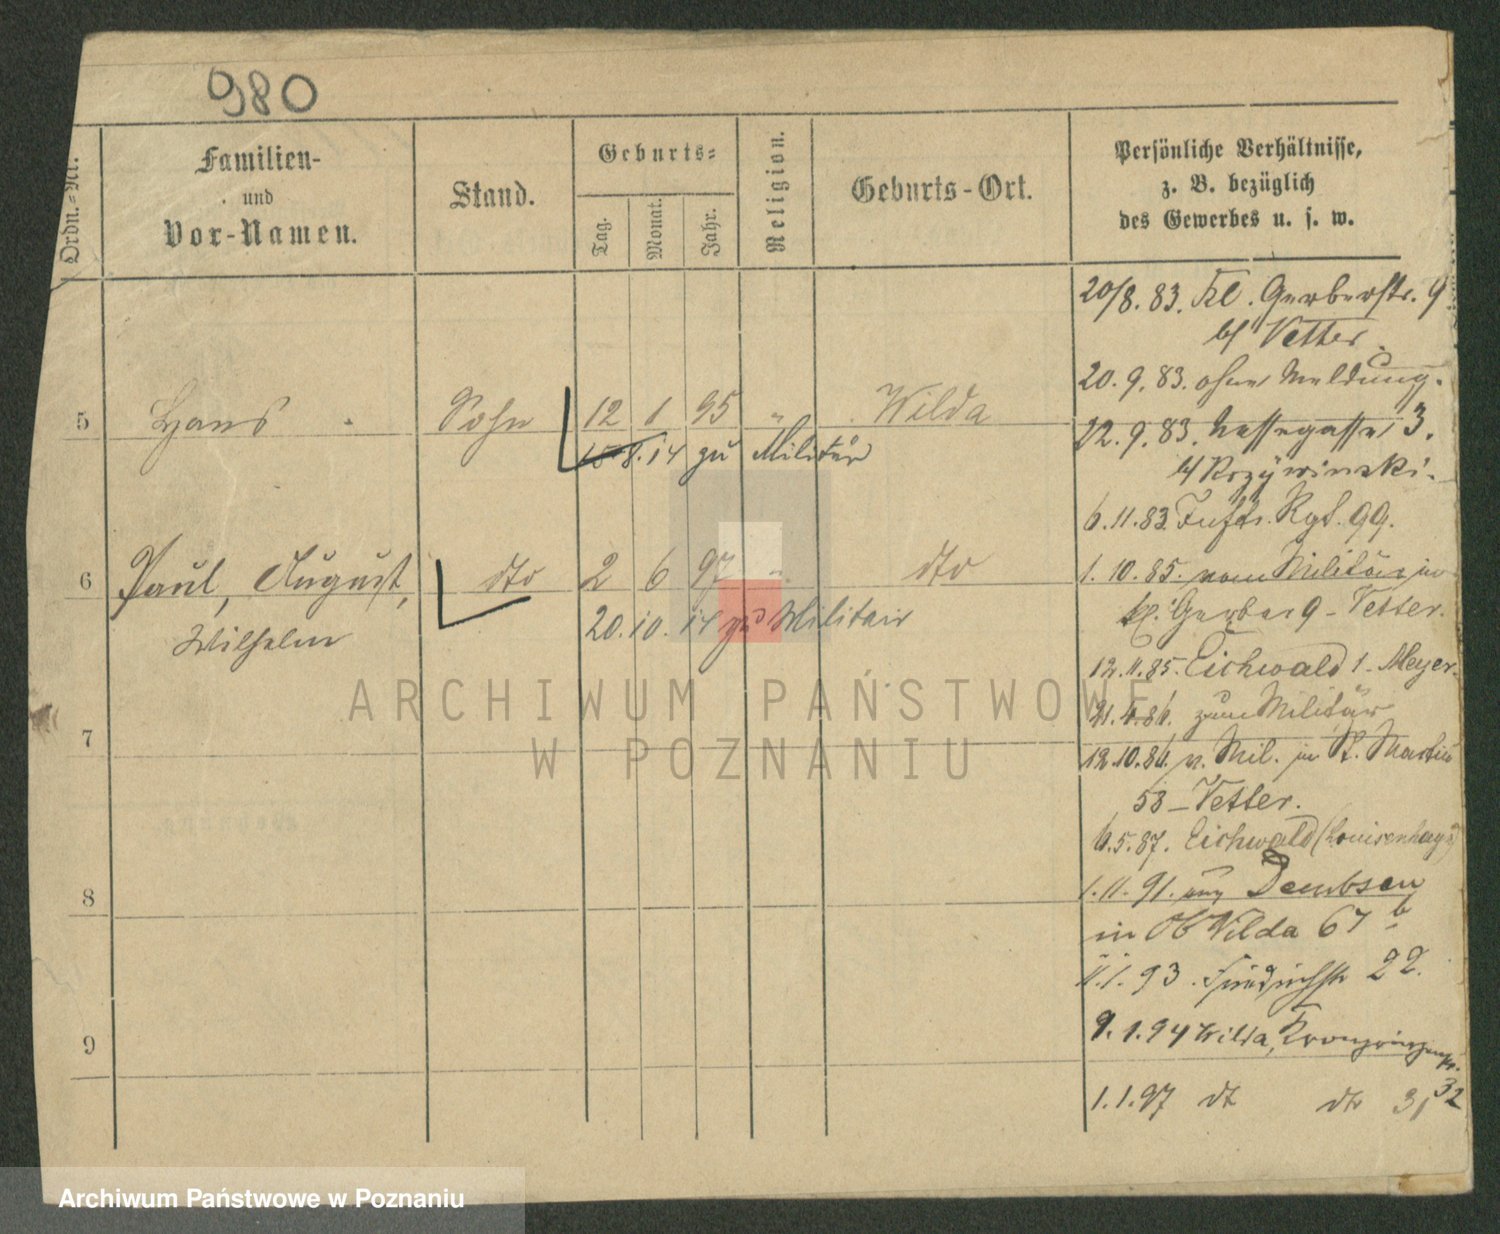 980
Ordn.-Nr.
Familien-
und
Vor-Namen.
Stand.
Geburts-
Tag.
Monat.
Jahr.
Religion.
Geburts-Ort.
Persönliche Verhältnisse,
z. B. bezüglich
des Gewerbes u. s. w.
5 Hans Sohn 12 1 95 " Wilda
15.8.14 zu Militär
6 Paul, August, dto 2 6 97 " dto
Wilhelm
20.10.14 zu Militair
7
8
9
20/8. 83. Kl. Gerberstr. 9
b/ Vetter.
20. 9. 83. ohne Meldung.
22. 9. 83. 3.
b/ Krzywinski.
6. 11. 83. Inftr. Rgt. 99.
1. 10. 85. vom Militär in
kl. Gerber 9 - Vetter.
12. 11. 85. Eichwald 1 - Meyer.
zum Militär
12. 10. 86. v. Mil. in St. Martin
58 - Vetter.
6. 5. 87. Eichwald (Louisenhayn)
1. 11. 91. aus Dembsen
in Ob Wilda 67 b
11. 1. 93. Friedrichstr 22.
9. 1. 94 Wilda, Kronprinzenstr.
32
1. 1. 97 dt dto 31
ARCHIWUM PAŃSTWOWE
W POZNANIU
Archiwum Państwowe w Poznaniu